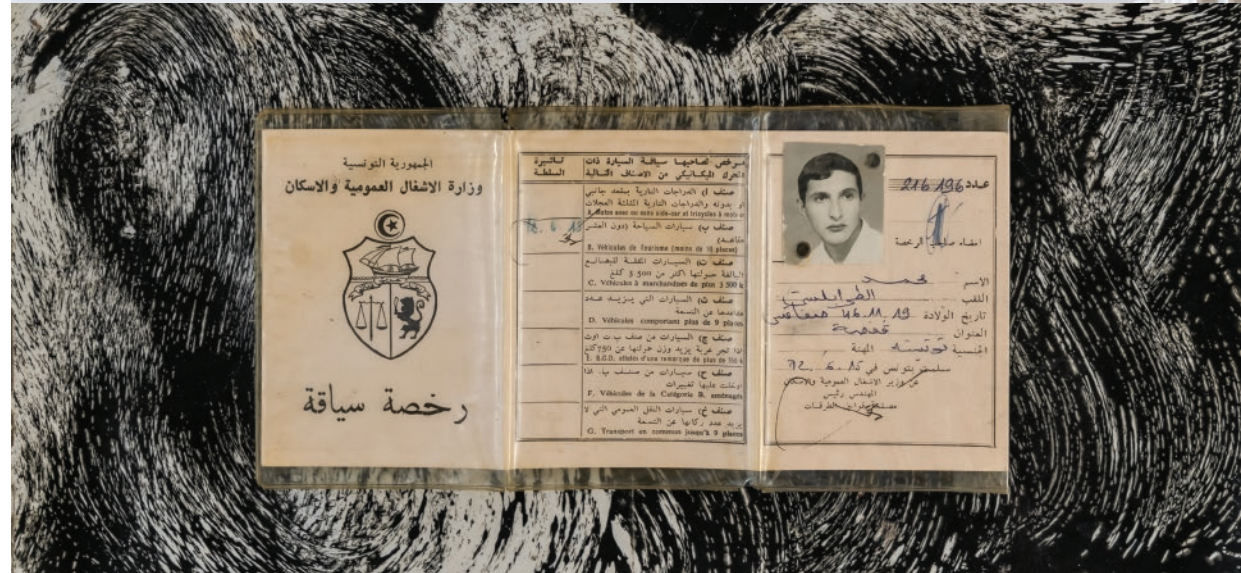 الجمهورية التونسية
وزارة الاشغال العمومية والاسكان
رخصة سياقة
مرخص لصاحبها سياقة السيارة ذات
المحرك الميكانيكي من الاصناف التالية
تأشيرة
السلطة
صنف أ) الدراجات النارية بمقعد جانبي
او بدونه والدراجات النارية المثلثة العجلات
صنف ب) سيارات السياحة (دون العشر
مقاعد)
B. Véhicules de Tourisme (moins de 10 places)
صنف ت) السيارات المثقلة للبضائع
البالغة حمولتها اكثر من 3.500 كلغ
C. Véhicules à marchandises de plus 3 500 k
صنف ث) السيارات التي يزيد عدد
مقاعدها عن التسعة
D. Véhicules comportant plus de 9 places
صنف ج) السيارات من صنف ب.ت اوث
اذا تجر عربة يزيد وزن حمولتها عن 750 كلغ
صنف ح) سيارات من صنف ب. اذا
ادخلت عليها تغييرات
F. Véhicules de la Catégorie B. aménagés
صنف خ) سيارات النقل العمومي التي لا
يزيد عدد ركابها عن التسعة
G. Transport en commun jusqu'à 9 places
عدد 216 196
امضاء صاحب الرخصة
الاسم محمد
اللقب الطرابلسي
تاريخ الولادة 19.11.46 صفاقس
العنوان قفصة
الجنسية تونسية المهنة
سلمت بتونس في 15.6.72
عن وزير الاشغال العمومية والاسكان
المهندس رئيس
الطرقات